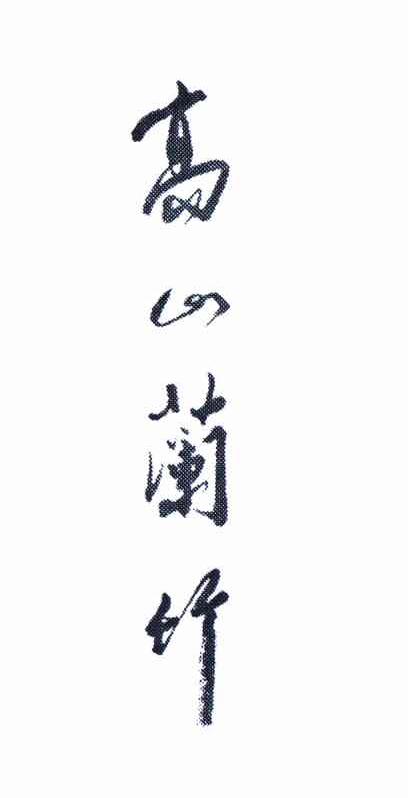 高山蘭竹